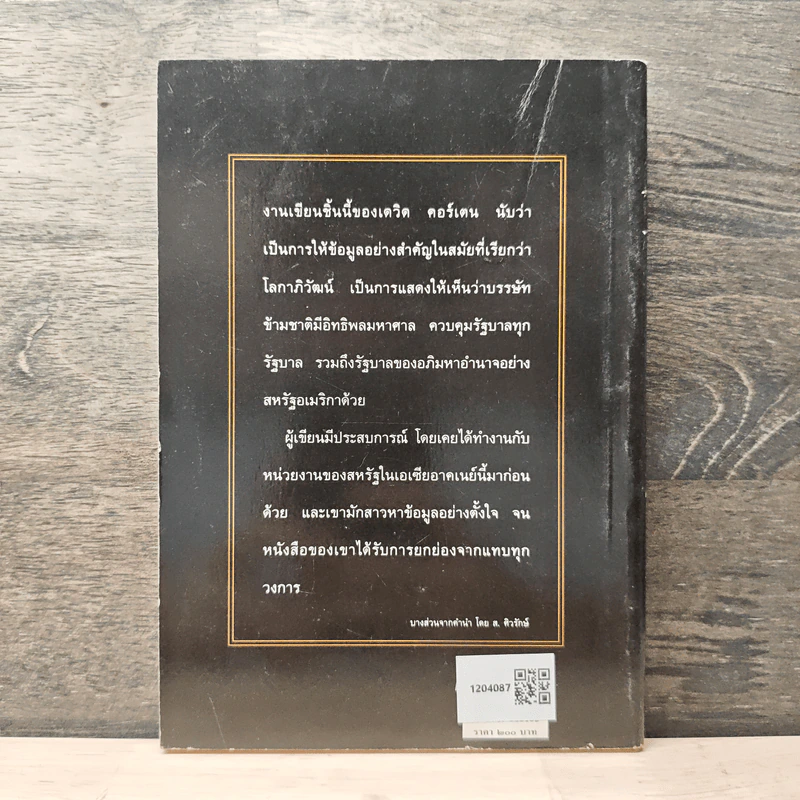 งานเขียนชิ้นนี้ของเดวิด คอร์เตน นับว่า
เป็นการให้ข้อมูลอย่างสำคัญในสมัยที่เรียกว่า
โลกาภิวัฒน์ เป็นการแสดงให้เห็นว่าบรรษัท
ข้ามชาติมีอิทธิพลมหาศาล ควบคุมรัฐบาลทุก
รัฐบาล รวมถึงรัฐบาลของอภิมหาอำนาจอย่าง
สหรัฐอเมริกาด้วย
ผู้เขียนมีประสบการณ์ โดยเคยได้ทำงานกับ
หน่วยงานของสหรัฐในเอเซียอาคเนย์นี้มาก่อน
ด้วย และเขามักสาวหาข้อมูลอย่างตั้งใจ จน
หนังสือของเขาได้รับการยกย่องจากแทบทุก
วงการ
บางส่วนจากคำนำ โดย ส. ศิวรักษ์
1204087
ราคา ๒๐๐ บาท